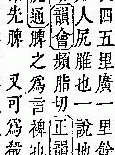 四五里廣一里
人尻脽也一說地
韻會頻脂切正韻
脾之爲言裨
先脾　又可爲